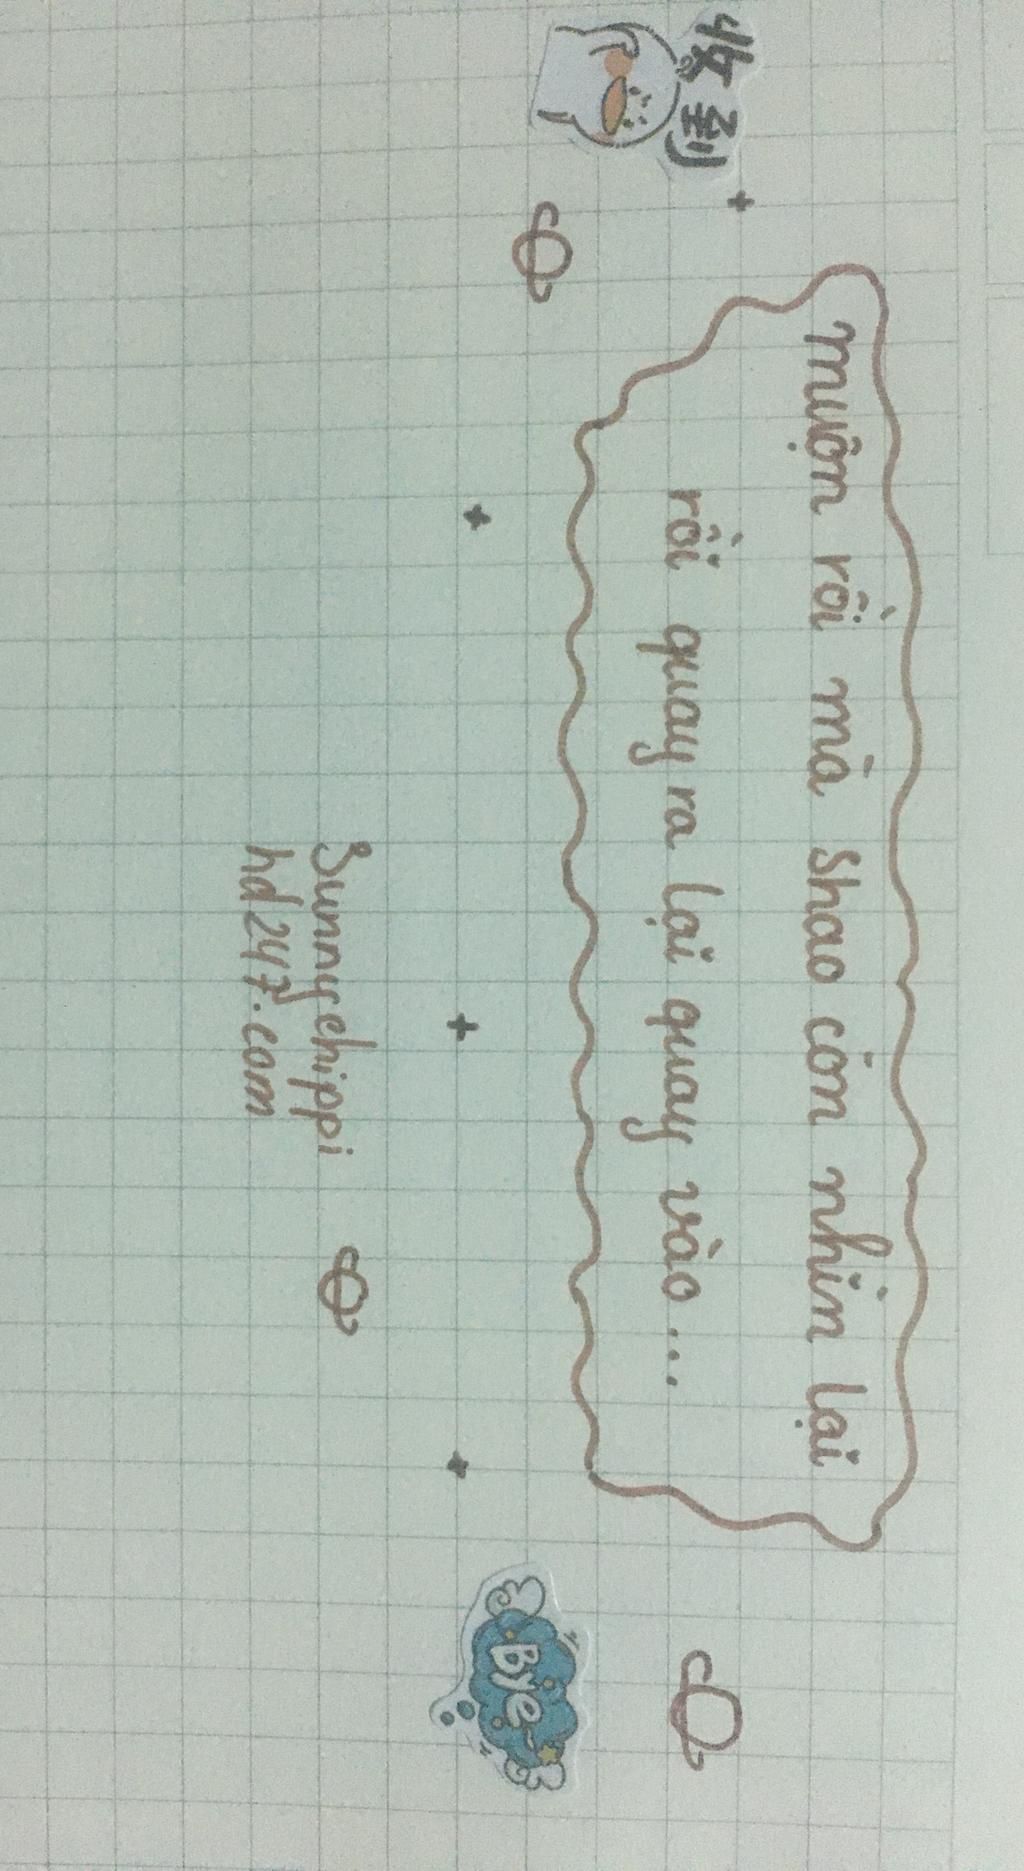 收到
muộn rồi mà Shao còn nhìn lại
rồi quay ra lại quay vào...
Sunnychippi
hd247.com
Bye~